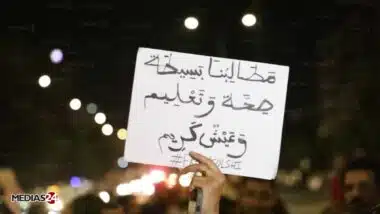 مطالبنا بسيطة
صحة وتعليم
وعيش كريم
MEDIAS24